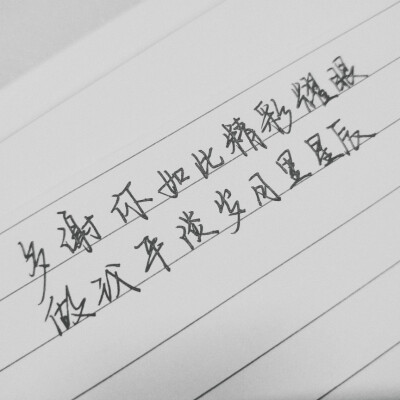 多谢你如比精彩耀眼
做我平淡岁月里星辰